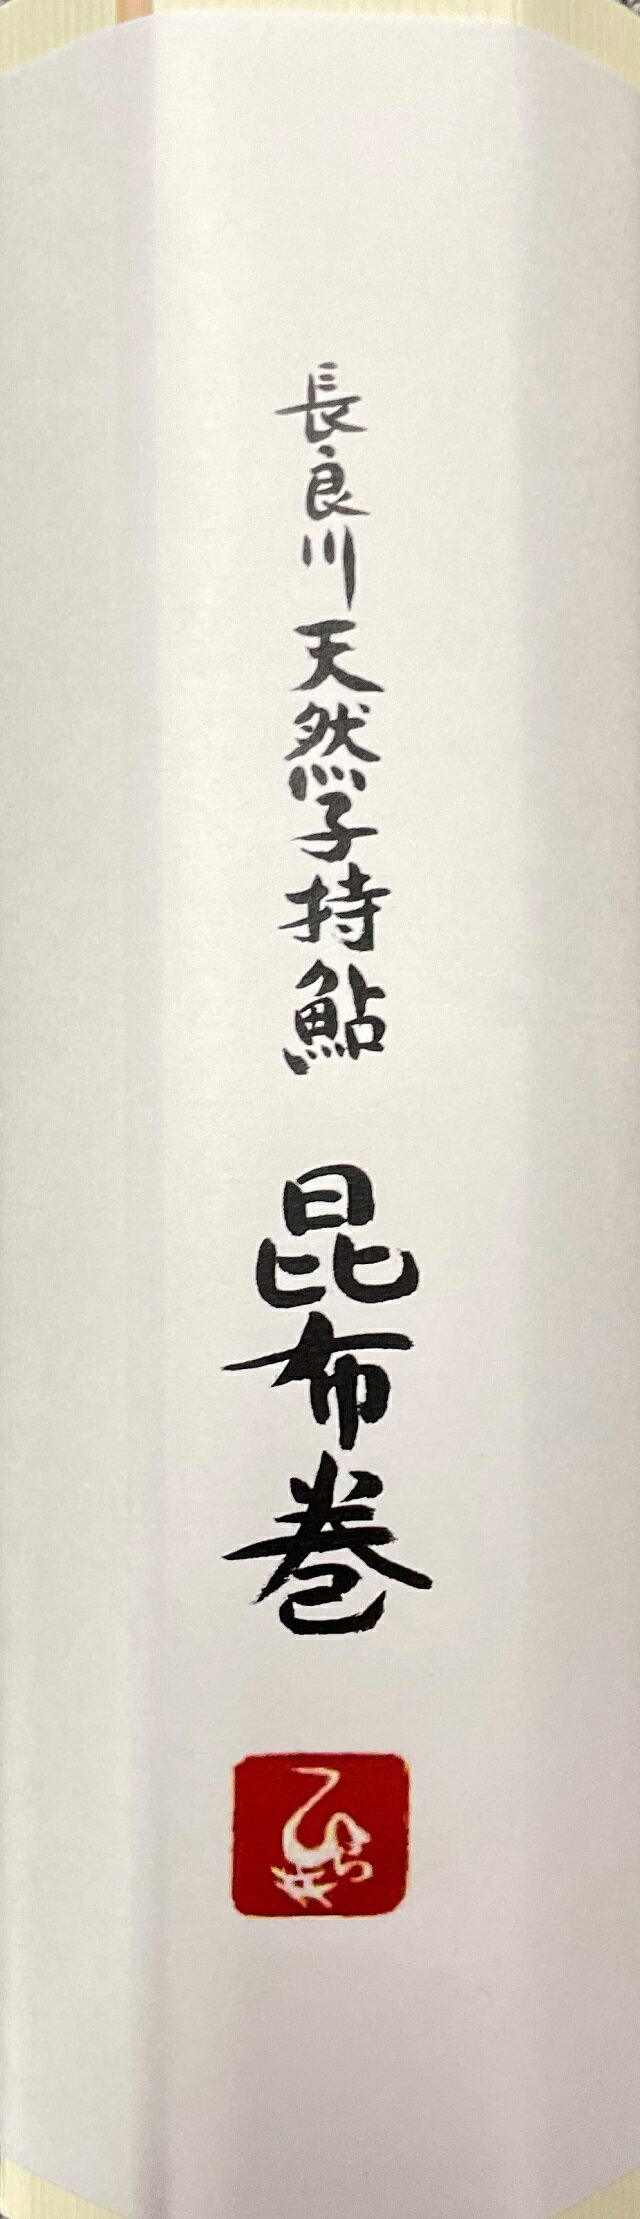 長良川天然子持鮎 昆布巻
ひら井